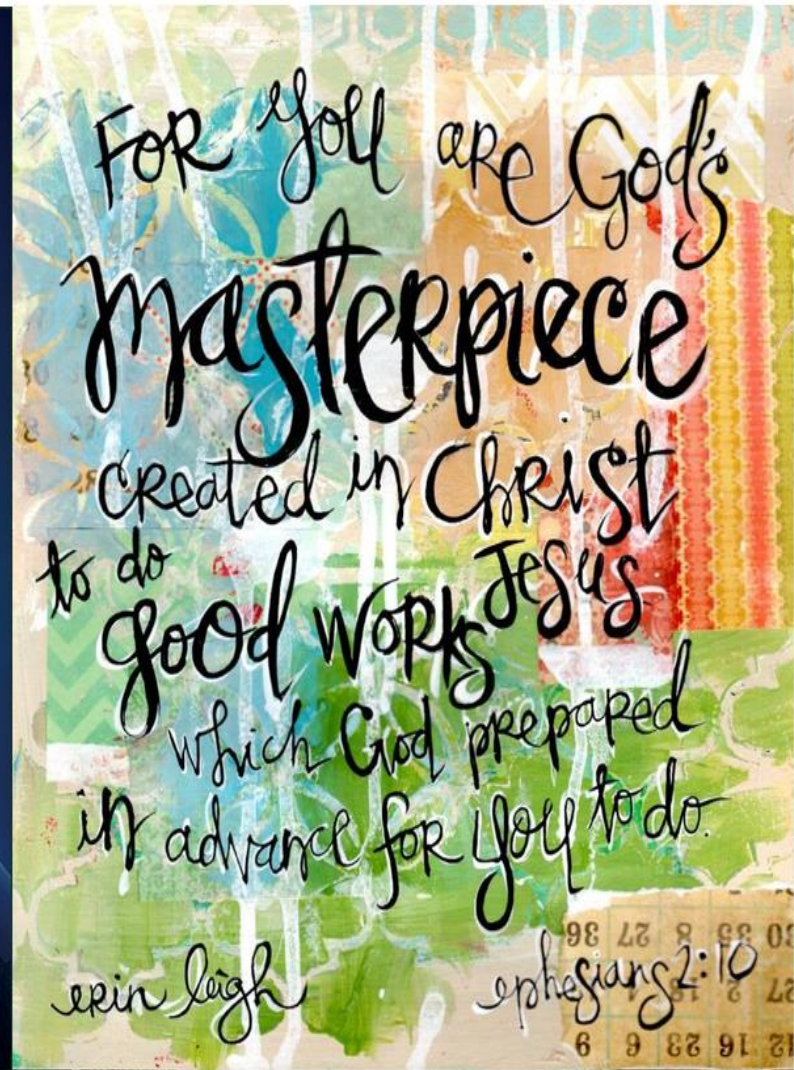 FOR you are God's
Masterpiece
created in Christ
to do Jesus
good works
which God prepared
in advance for you to do.
erin leigh ephesians 2:10